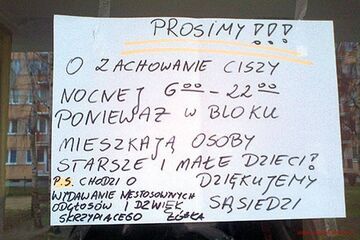 PROSIMY!!!
O ZACHOWANIE CISZY
NOCNEJ 6⁰⁰ - 22⁰⁰
PONIEWAŻ W BLOKU
MIESZKAJĄ OSOBY
STARSZE I MAŁE DZIECI!
DZIĘKUJEMY
SĄSIEDZI
P.S. CHODZI O
WYDAWANIE NIESTOSOWNYCH
ODGŁOSÓW I DŹWIĘK
SKRZYPIĄCEGO ŁÓŻKA